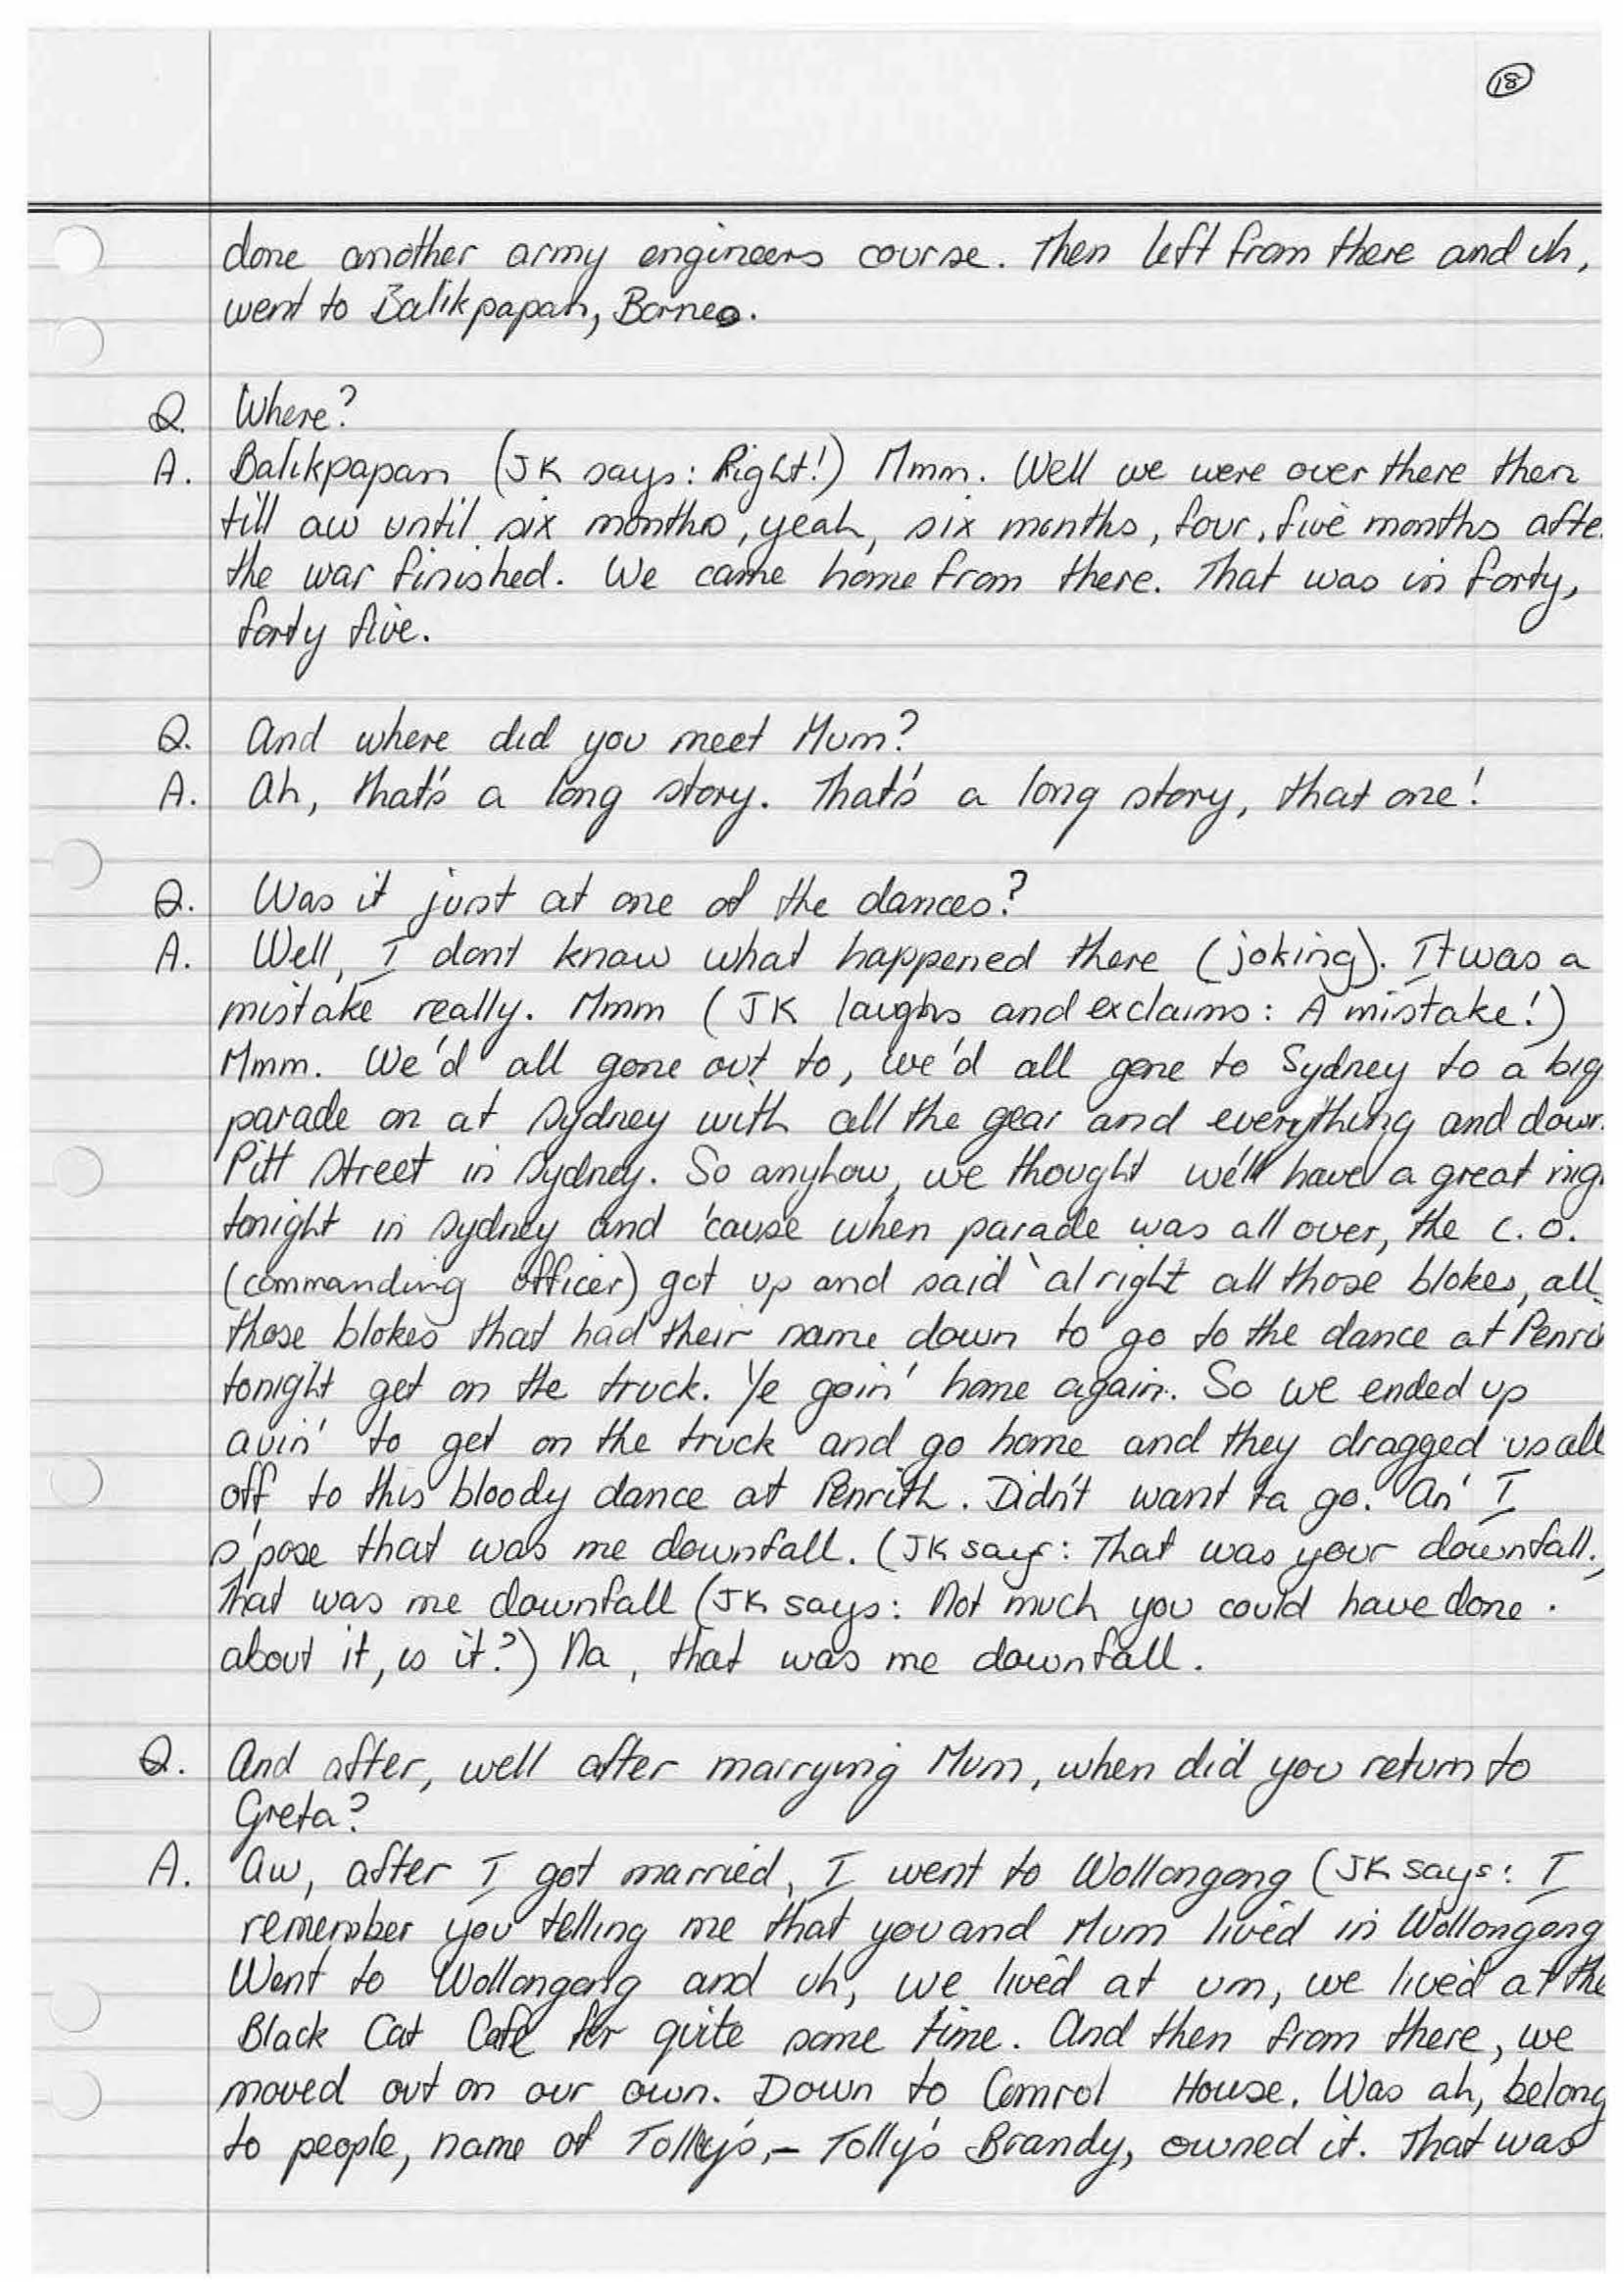 18
done another army engineers course. Then left from there and uh,
went to Balikpapan, Borneo.
Q. Where?
A. Balikpapan (JK says: Right!) Mmm. Well we were over there then
till aw until six months, yeah, six months, four, five months afte
the war finished. We came home from there. That was in forty,
forty five.
Q. And where did you meet Mum?
A. Ah, that's a long story. That's a long story, that one!
Q. Was it just at one of the dances?
A. Well, I dont know what happened there (joking). It was a
mistake really. Mmm (JK laughs and exclaims: A mistake!)
Mmm. We'd all gone out to, we'd all gone to Sydney to a big
parade on at Sydney with all the gear and everything and down
Pitt Street in Sydney. So anyhow, we thought we'll have a great nig
tonight in Sydney and 'cause when parade was all over, the C.O.
(commanding officer) got up and said 'alright all those blokes, all
those blokes that had their name down to go to the dance at Penri
tonight get on the truck. Ye goin' home again. So we ended up
avin' to get on the truck and go home and they dragged us all
off to this bloody dance at Penrith. Didn't want ta go. An' I
s'pose that was me downfall. (JK says: That was your downfall.)
That was me downfall (JK says: Not much you could have done
about it, is it?) Na, that was me downfall.
Q. And after, well after marrying Mum, when did you return to
Greta?
A. Aw, after I got married, I went to Wollongong (JK says: I
remember you telling me that you and Mum lived in Wollongong
Went to Wollongong and uh, we lived at um, we lived at the
Black Cat Cafe for quite some time. And then from there, we
moved out on our own. Down to Comrol House. Was ah, belong
to people, name of Tolley's, - Tolly's Brandy, owned it. That was